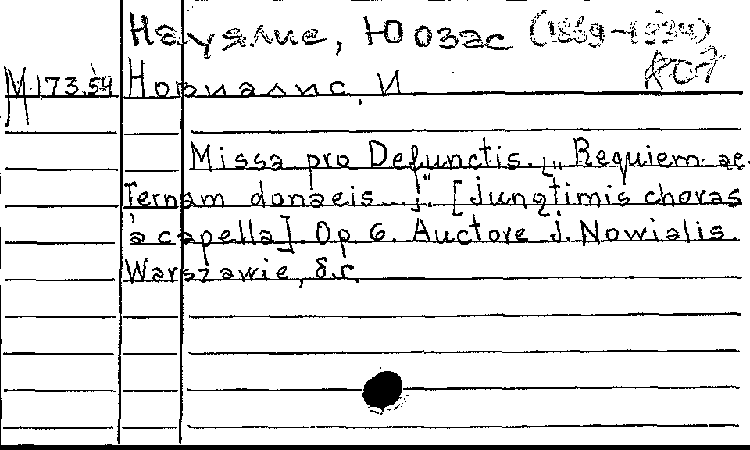 Науялис, Юозас (1869-1934)
М 173.54 Норналис, И 807
Missa pro Defunctis. [„Requiem ae-
ternam donaeis...]". [Jungtimis choras
à capella]. Op 6. Auctore J. Nowialis.
Warszawie, б.г.